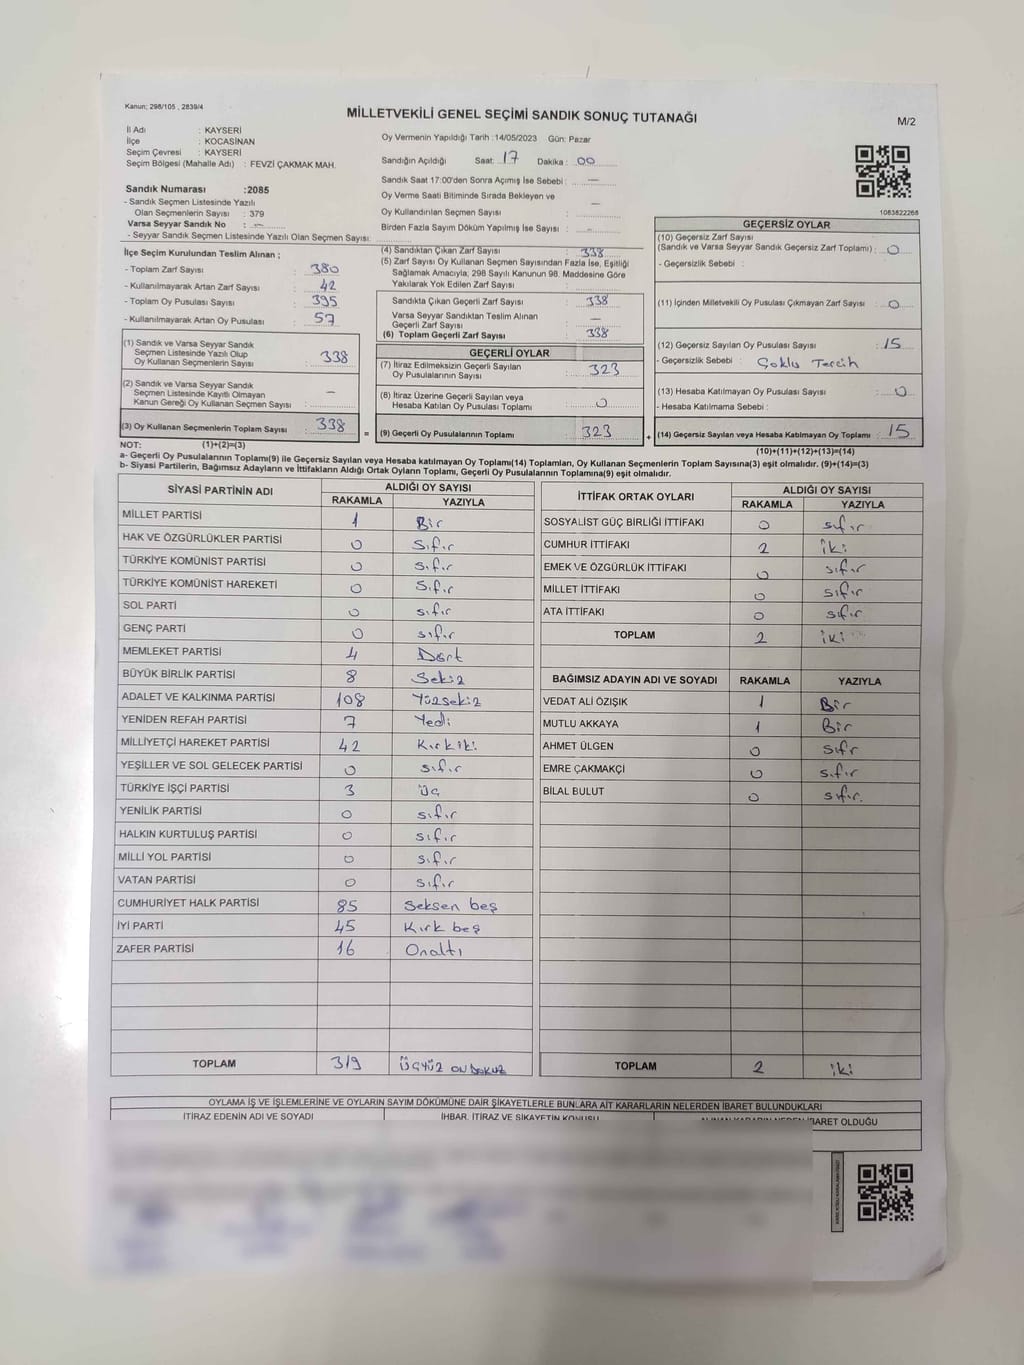 Kanun; 298/105 , 2839/4
MİLLETVEKİLİ GENEL SEÇİMİ SANDIK SONUÇ TUTANAĞI
M/2
İl Adı : KAYSERİ
İlçe : KOCASİNAN
Seçim Çevresi : KAYSERİ
Seçim Bölgesi (Mahalle Adı) : FEVZİ ÇAKMAK MAH.
Sandık Numarası :2085
- Sandık Seçmen Listesinde Yazılı
Olan Seçmenlerin Sayısı : 379
Varsa Seyyar Sandık No : -
- Seyyar Sandık Seçmen Listesinde Yazılı Olan Seçmen Sayısı:
Oy Vermenin Yapıldığı Tarih :14/05/2023 Gün: Pazar
Sandığın Açıldığı Saat: 17 Dakika : 00
Sandık Saat 17:00'den Sonra Açımış İse Sebebi : -
Oy Verme Saati Bitiminde Sırada Bekleyen ve
Oy Kullandırılan Seçmen Sayısı : -
Birden Fazla Sayım Döküm Yapılmış İse Sayısı : -
1083822268
İlçe Seçim Kurulundan Teslim Alınan ;
- Toplam Zarf Sayısı : 380
- Kullanılmayarak Artan Zarf Sayısı : 42
- Toplam Oy Pusulası Sayısı : 395
- Kullanılmayarak Artan Oy Pusulası : 57
(1) Sandık ve Varsa Seyyar Sandık
Seçmen Listesinde Yazılı Olup
Oy Kullanan Seçmenlerin Sayısı : 338
(2) Sandık ve Varsa Seyyar Sandık
Seçmen Listesinde Kayıtlı Olmayan
Kanun Gereği Oy Kullanan Seçmen Sayısı : -
(3) Oy Kullanan Seçmenlerin Toplam Sayısı : 338
(4) Sandıktan Çıkan Zarf Sayısı : 338
(5) Zarf Sayısı Oy Kullanan Seçmen Sayısından Fazla İse, Eşitliği
Sağlamak Amacıyla, 298 Sayılı Kanunun 98. Maddesine Göre
Yakılarak Yok Edilen Zarf Sayısı :
Sandıkta Çıkan Geçerli Zarf Sayısı : 338
Varsa Seyyar Sandıktan Teslim Alınan
Geçerli Zarf Sayısı : -
(6) Toplam Geçerli Zarf Sayısı : 338
GEÇERLİ OYLAR
(7) İtiraz Edilmeksizin Geçerli Sayılan
Oy Pusulalarının Sayısı : 323
(8) İtiraz Üzerine Geçerli Sayılan veya
Hesaba Katılan Oy Pusulası Toplamı : 0
= (9) Geçerli Oy Pusulalarının Toplamı : 323
GEÇERSİZ OYLAR
(10) Geçersiz Zarf Sayısı
(Sandık ve Varsa Seyyar Sandık Geçersiz Zarf Toplamı) : 0
- Geçersizlik Sebebi :
(11) İçinden Milletvekili Oy Pusulası Çıkmayan Zarf Sayısı : 0
(12) Geçersiz Sayılan Oy Pusulası Sayısı : 15
- Geçersizlik Sebebi : Çoklu Tercih
(13) Hesaba Katılmayan Oy Pusulası Sayısı : 0
- Hesaba Katılmama Sebebi :
+ (14) Geçersiz Sayılan veya Hesaba Katılmayan Oy Toplamı : 15
NOT: (1)+(2)=(3)
(10)+(11)+(12)+(13)=(14)
a- Geçerli Oy Pusulalarının Toplamı(9) ile Geçersiz Sayılan veya Hesaba katılmayan Oy Toplamı(14) Toplamları, Oy Kullanan Seçmenlerin Toplam Sayısına(3) eşit olmalıdır. (9)+(14)=(3)
b- Siyasi Partilerin, Bağımsız Adayların ve İttifakların Aldığı Ortak Oyların Toplamı, Geçerli Oy Pusulalarının Toplamına(9) eşit olmalıdır.
SİYASİ PARTİNİN ADI ALDIĞI OY SAYISI
RAKAMLA YAZIYLA
MİLLET PARTİSİ 1 Bir
HAK VE ÖZGÜRLÜKLER PARTİSİ 0 Sıfır
TÜRKİYE KOMÜNİST PARTİSİ 0 Sıfır
TÜRKİYE KOMÜNİST HAREKETİ 0 Sıfır
SOL PARTİ 0 sıfır
GENÇ PARTİ 0 sıfır
MEMLEKET PARTİSİ 4 Dört
BÜYÜK BİRLİK PARTİSİ 8 Sekiz
ADALET VE KALKINMA PARTİSİ 108 Yüzsekiz
YENİDEN REFAH PARTİSİ 7 Yedi
MİLLİYETÇİ HAREKET PARTİSİ 42 Kırkiki
YEŞİLLER VE SOL GELECEK PARTİSİ 0 sıfır
TÜRKİYE İŞÇİ PARTİSİ 3 üç
YENİLİK PARTİSİ 0 sıfır
HALKIN KURTULUŞ PARTİSİ 0 sıfır
MİLLİ YOL PARTİSİ 0 sıfır
VATAN PARTİSİ 0 sıfır
CUMHURİYET HALK PARTİSİ 85 Seksen beş
İYİ PARTİ 45 Kırk beş
ZAFER PARTİSİ 16 Onaltı
TOPLAM 319 üçyüz on dokuz
İTTİFAK ORTAK OYLARI ALDIĞI OY SAYISI
RAKAMLA YAZIYLA
SOSYALİST GÜÇ BİRLİĞİ İTTİFAKI 0 sıfır
CUMHUR İTTİFAKI 2 iki
EMEK VE ÖZGÜRLÜK İTTİFAKI 0 sıfır
MİLLET İTTİFAKI 0 sıfır
ATA İTTİFAKI 0 sıfır
TOPLAM 2 iki
BAĞIMSIZ ADAYIN ADI VE SOYADI RAKAMLA YAZIYLA
VEDAT ALİ ÖZIŞIK 1 Bir
MUTLU AKKAYA 1 Bir
AHMET ÜLGEN 0 sıfr
EMRE ÇAKMAKÇİ 0 sıfır
BİLAL BULUT 0 sıfır.
TOPLAM 2 iki
OYLAMA İŞ VE İŞLEMLERİNE VE OYLARIN SAYIM DÖKÜMÜNE DAİR ŞİKAYETLERLE BUNLARA AİT KARARLARIN NELERDEN İBARET BULUNDUKLARI
İTİRAZ EDENİN ADI VE SOYADI İHBAR, İTİRAZ VE ŞİKAYETİN KONUSU ALINAN KARARIN NEDEN İBARET OLDUĞU